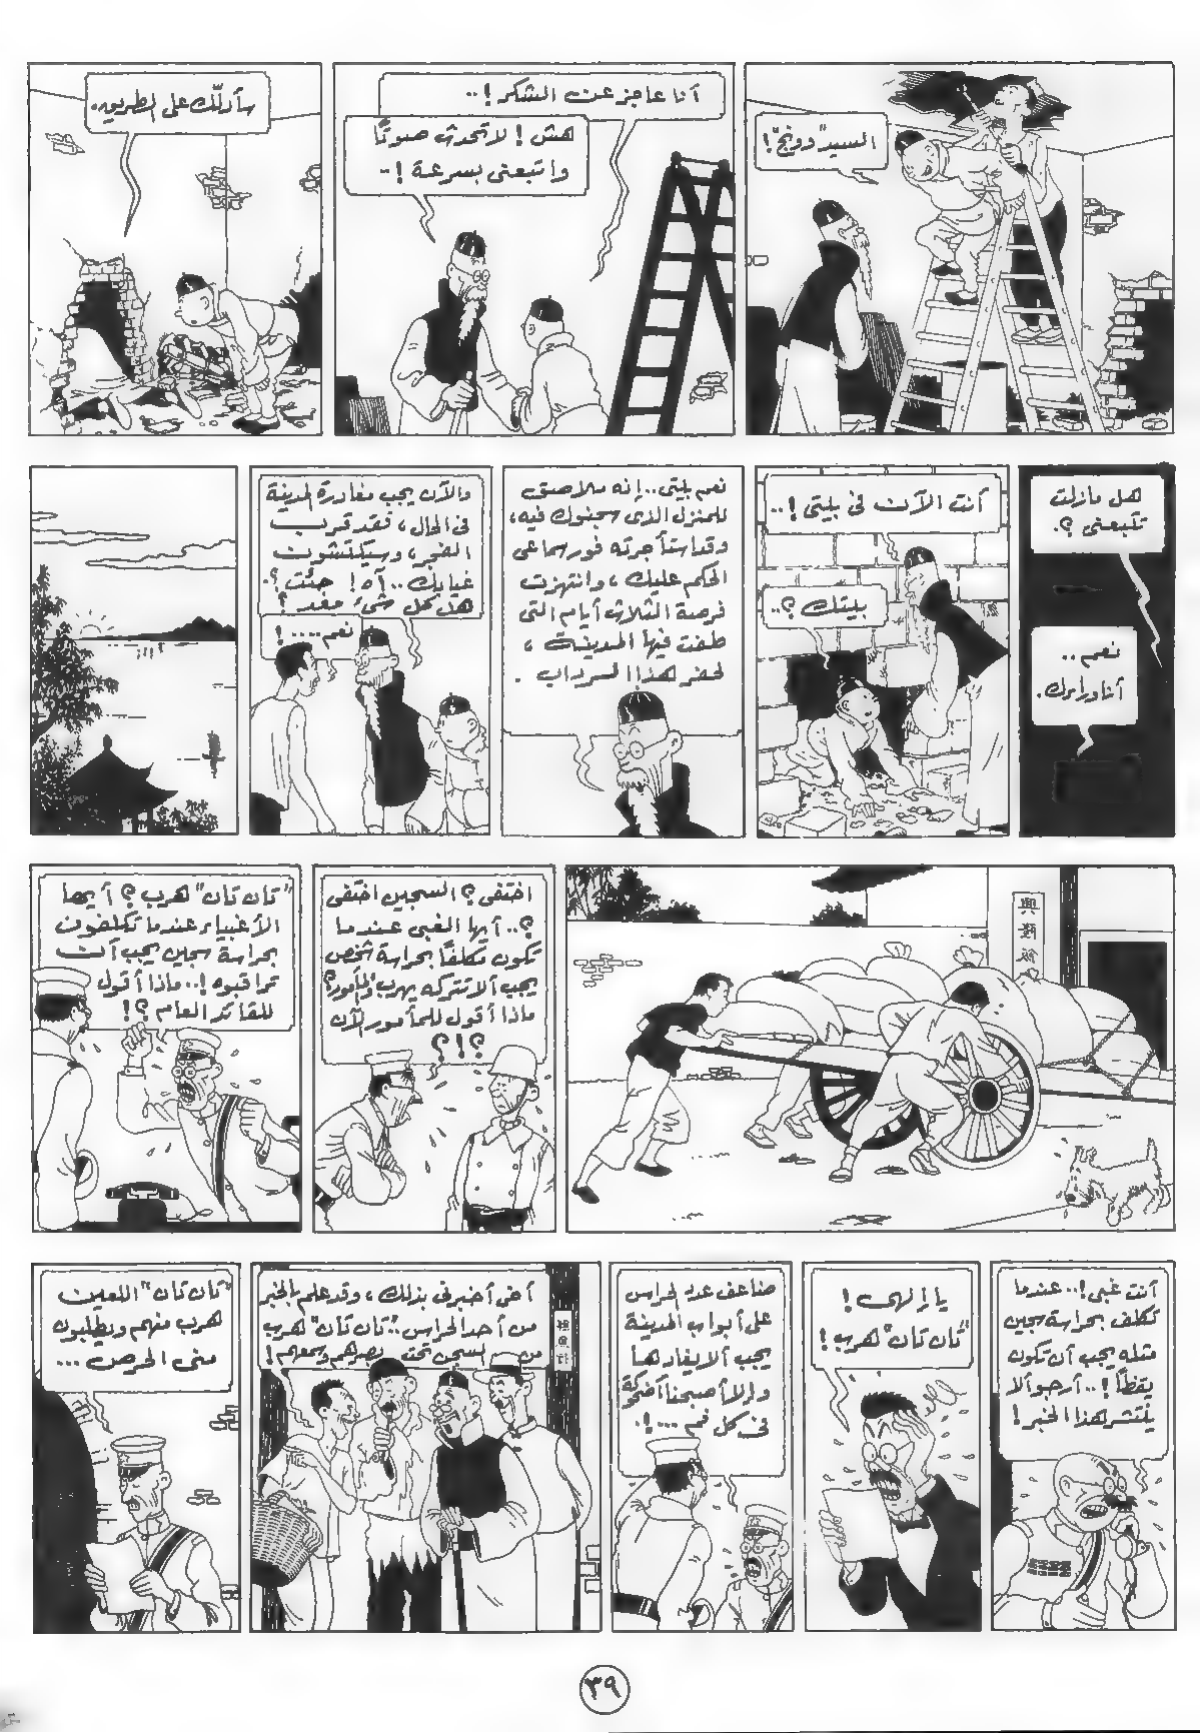 السيد "وونج"!
أنا عاجز عن الشكر!..
هش! لا تحدث صوتًا
واتبعني بسرعة!..
سأدلّك على الطريق.
هل مازلت
تتبعني؟.
نعم..
أنا وراءك.
أنت الآن في بيتي!..
بيتك؟..
نعم بيتي.. إنه ملاصق
للمنزل الذي سجنوك فيه،
وقد استأجرته فور سماعي
الحكم عليك، وانتهزت
فرصة الثلاث أيام التي
طفت فيها المدينة،
لحفر هذا السرداب.
والآن يجب مغادرة المدينة
في الحال، فقد قرب
الفجر، وسيكتشفون
غيابك.. آه! جئت؟.
هل كل شيء معد؟
نعم....!
興
اختفى؟ السجين اختفى
؟.. أيها الغبي عندما
تكون مكلفًا بحراسة شخص
يجب ألا تتركه يهرب والمأمور؟
ماذا أقول للمأمور الآن
؟!؟
"تان تان" هرب؟ أيها
الأغبياء عندما تكلفون
بحراسة سجين يجب أن
تراقبوه!.. ماذا أقول
للقائد العام؟!
أنت غبي!.. عندما
تكلف بحراسة سجين
مثله يجب أن تكون
يقظًا!.. أرجو ألا
ينتشر هذا الخبر!
يا إلهي!
"تان تان" هرب!
ضاعف عدد الحراس
على أبواب المدينة
يجب ألا يغادرها
وإلا أصبحنا أضحوكة
في كل فم...!.
أخي أخبرني بذلك، وقد علم بالخبر
من أحد الحراس.. "تان تان" هرب
من السجن تحت بصرهم وسمعهم!
"تان تان" اللعين
هرب منهم ويطلبون
مني الحرص...
٣٩